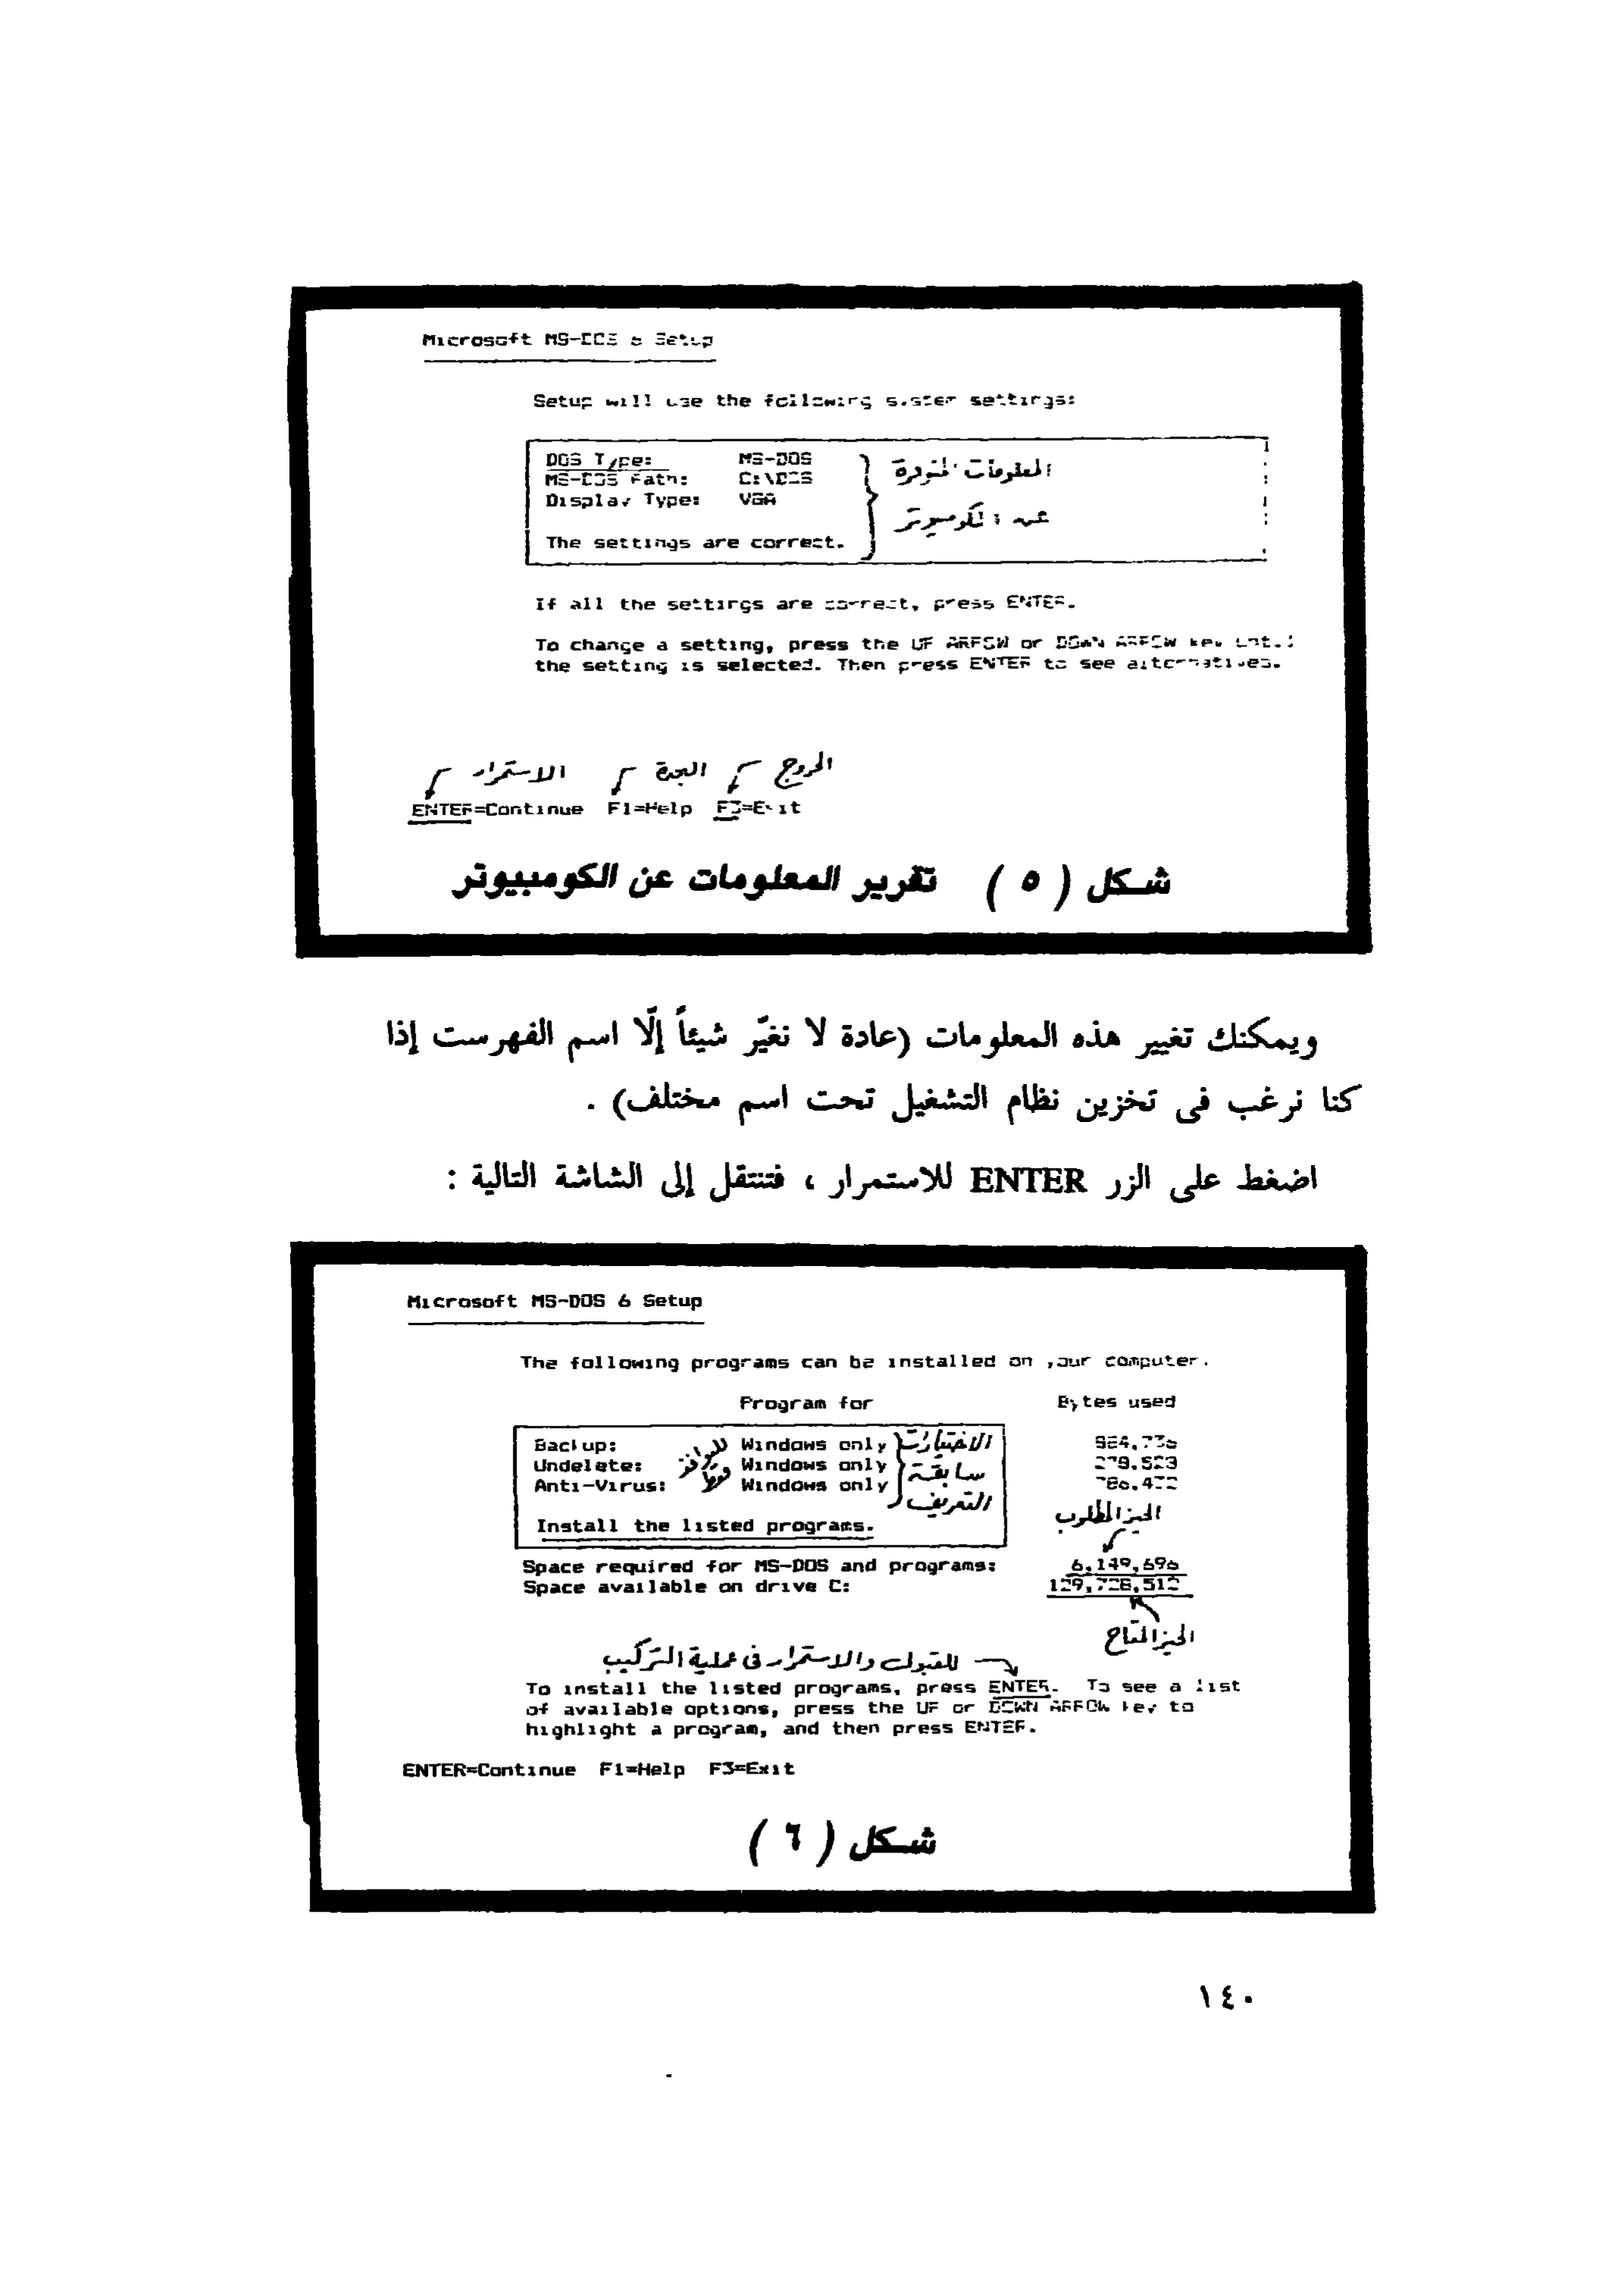 Microsoft MS-DOS 6 Setup
Setup will use the following system settings:
DOS Type: MS-DOS
MS-DOS Path: C:\DOS
Display Type: VGA
The settings are correct.
المعلومات المتوفرة
عن الكومبيوتر
If all the settings are correct, press ENTER.
To change a setting, press the UP ARROW or DOWN ARROW key until
the setting is selected. Then press ENTER to see alternatives.
الاستمرار النجدة الخروج
ENTER=Continue F1=Help F3=Exit
شكل ( ٥ ) تقرير المعلومات عن الكومبيوتر
ويمكنك تغيير هذه المعلومات (عادة لا نغيّر شيئاً إلّا اسم الفهرست إذا
كنا نرغب فى تخزين نظام التشغيل تحت اسم مختلف) .
اضغط على الزر ENTER للاستمرار ، فتنتقل إلى الشاشة التالية :
Microsoft MS-DOS 6 Setup
The following programs can be installed on your computer.
Program for Bytes used
Backup: Windows only
Undelete: Windows only
Anti-Virus: Windows only
للنوافذ
فقط
الاختيارات
سابقة
التعريف
Install the listed programs.
الحيز المطلوب
Space required for MS-DOS and programs: 6,149,696
Space available on drive C: 129,728,512
الحيز المتاح
للقبول والاستمرار فى عملية التركيب
To install the listed programs, press ENTER. To see a list
of available options, press the UP or DOWN ARROW key to
highlight a program, and then press ENTER.
ENTER=Continue F1=Help F3=Exit
شكل ( ٦ )
١٤٠